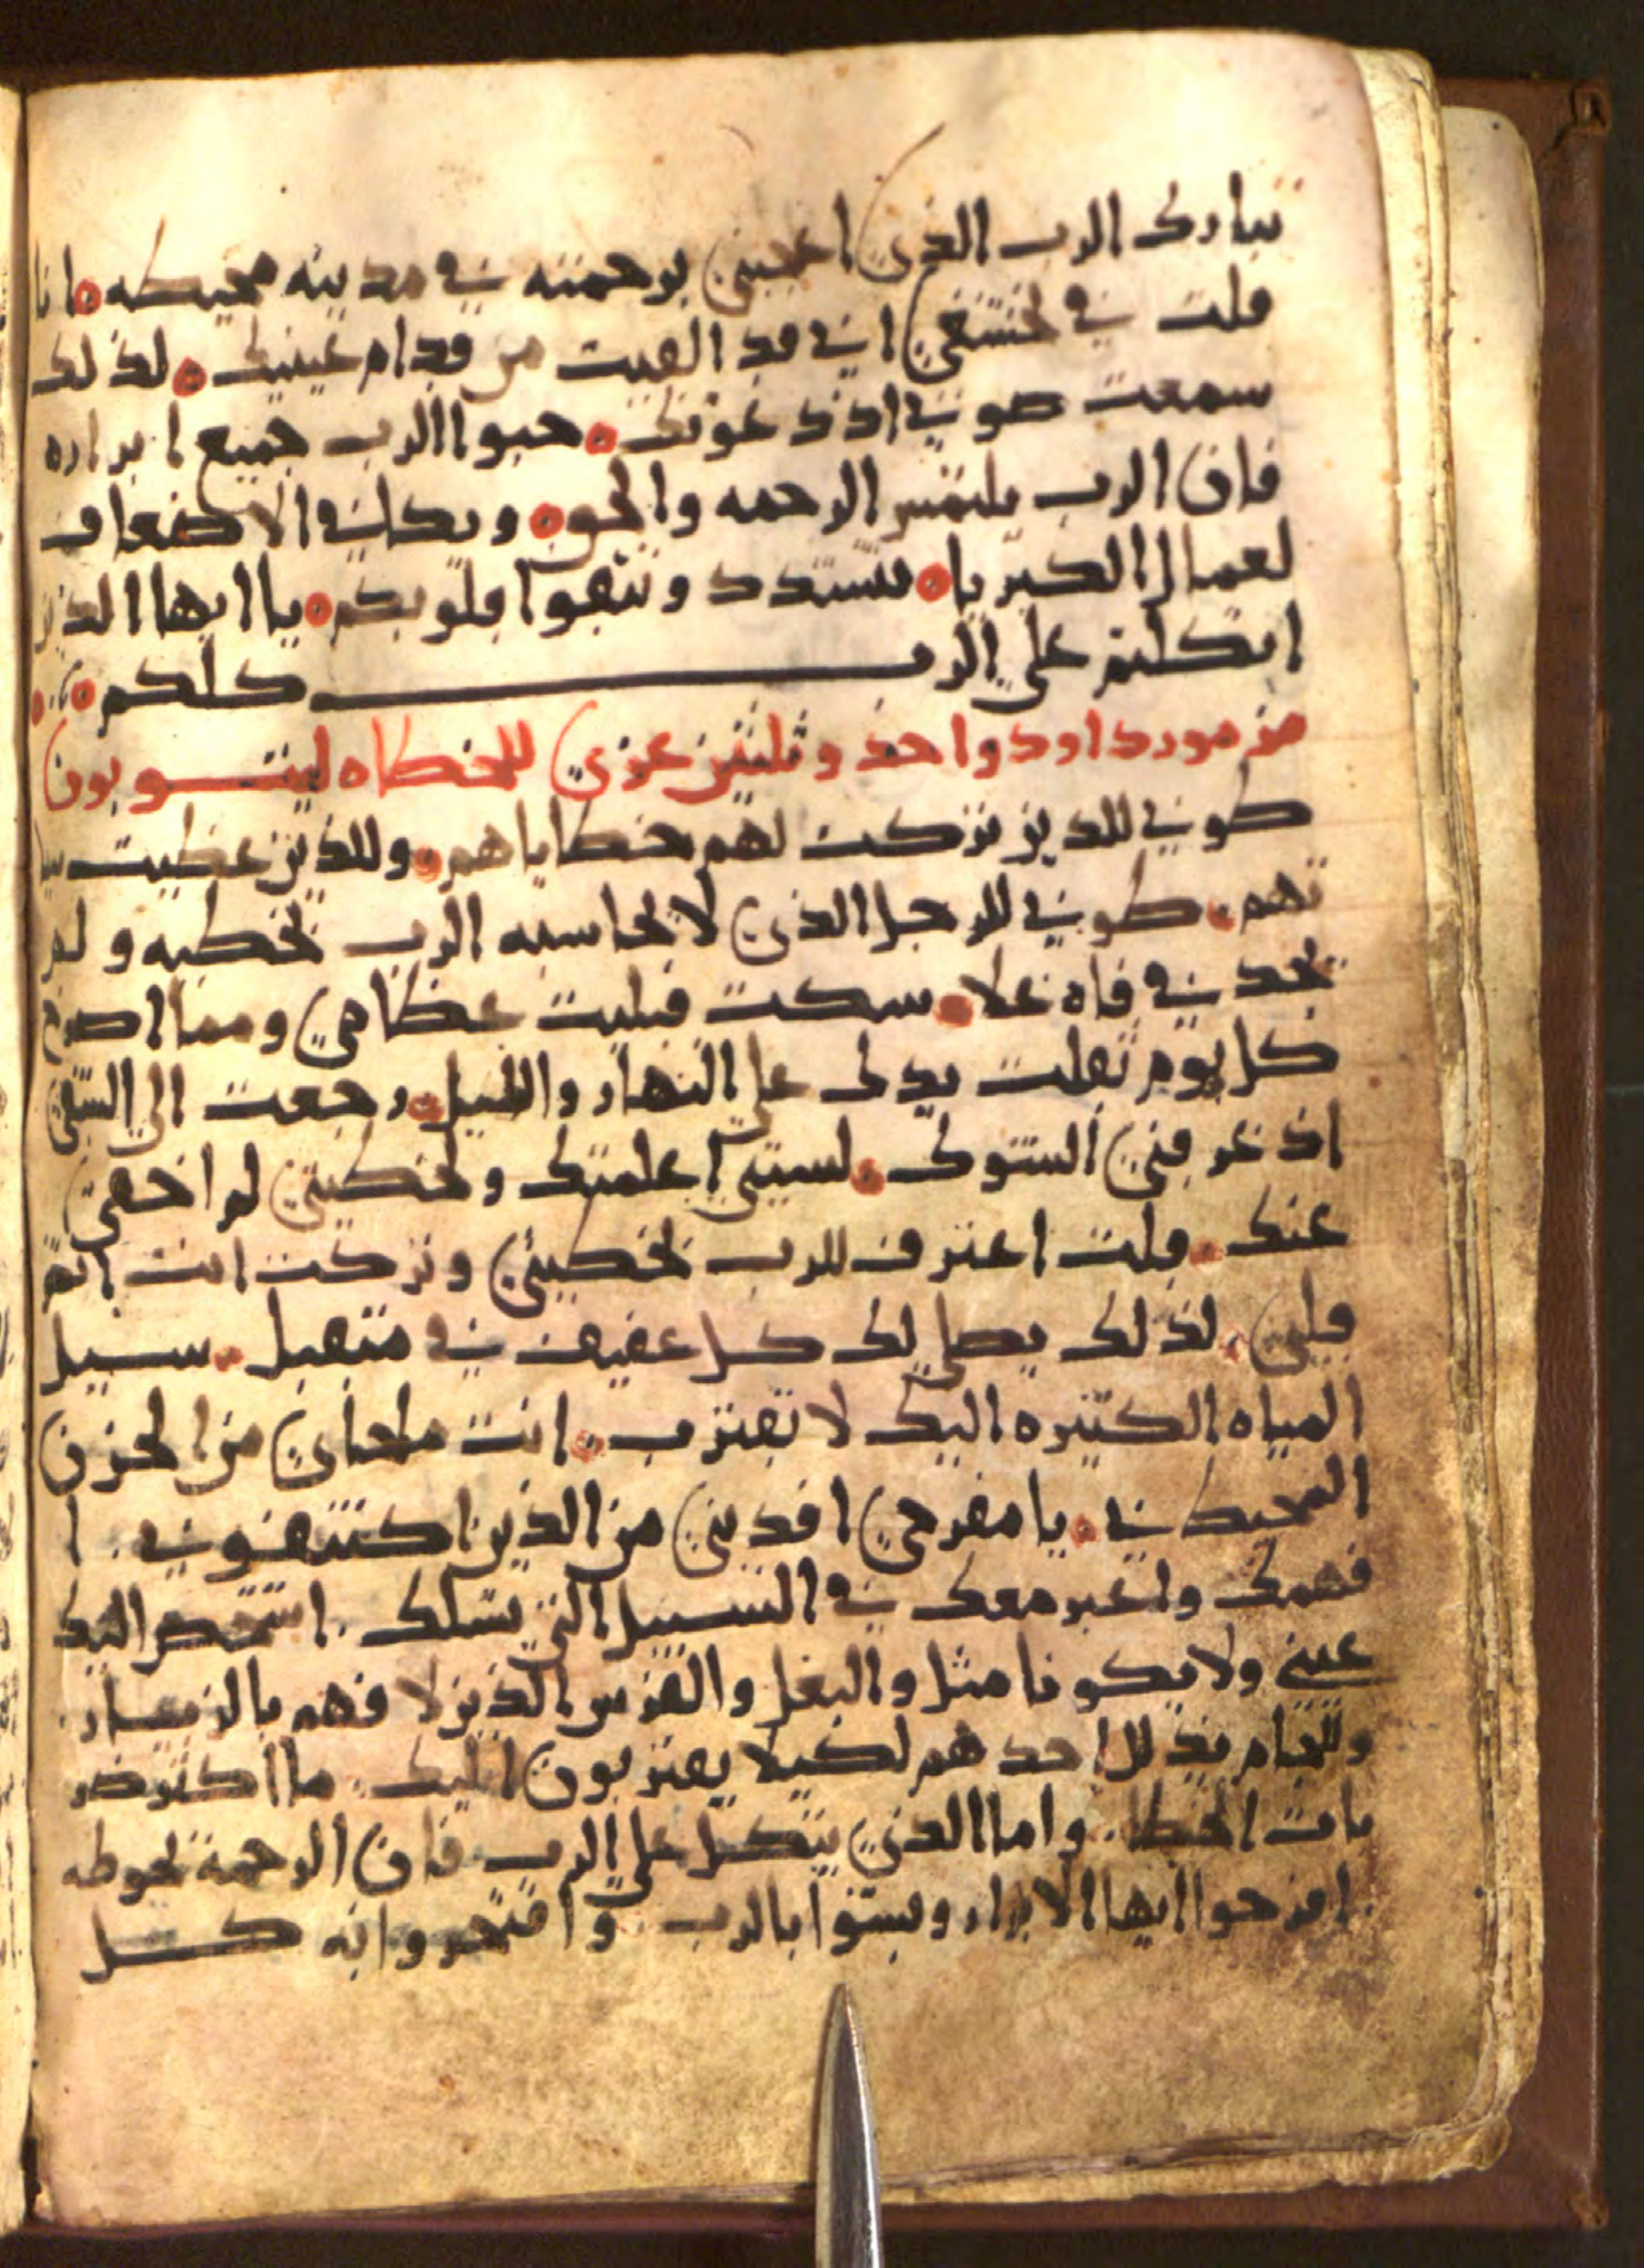 تبارك الرب الذي اعجبني برحمته في مدينه محيطه انا
قلت في تخشعي اني قد القيت من قدام عينيك لذلك
سمعت صوتي اذ دعوتك حبوا الرب جميع ابراره
فان الرب يلتمس الرحمه والحق ويكافي الاضعاف
لعمال الكبريا فتشدد وتتقوا قلوبكم يا ايها الذين
اتكلتم علي الرب كلكم
مزمور داود واحد وثلثين عزي للخطاه ليتوبون
طوبي للذين تركت لهم خطاياهم وللذين غطيت سيا
تهم طوبي للرجل الذي لا يحاسبه الرب بخطيه ولم
يجد في فاه غلا سكت فبليت عظامي ومما اصرخ
كل يوم ثقلت يدك علي النهار والليل رجعت الي الشقي
اذ غرقني الشوك لسيتي اعلمتك ولخطيتي لم اخفي
عنك قلت اعترف للرب بخطيتي وتركت انت اثم
قلبي لذلك يصلي لك كل عفيف في متقبل سبيل
المياه الكثيره اليك لا تقترب انت ملجاي من الحزن
المحيط بي يا مفرحي افديني من الذين اكتنفوني ا
فهمك واعبر معك في السبيل التي تسلك اشخص اليك
عيني ولا يكونا مثل والبغل والفرس الذين لا فهم بالزيار
وللجام يذلل احدهم لكيلا يقتربون اليك ما اكثر ضر
بات الخطا واما الذي يتكل علي الرب فان الرحمة تحوطه
افرحوا ايها الابرار وبتقوا بالرب وافتخروا به كل